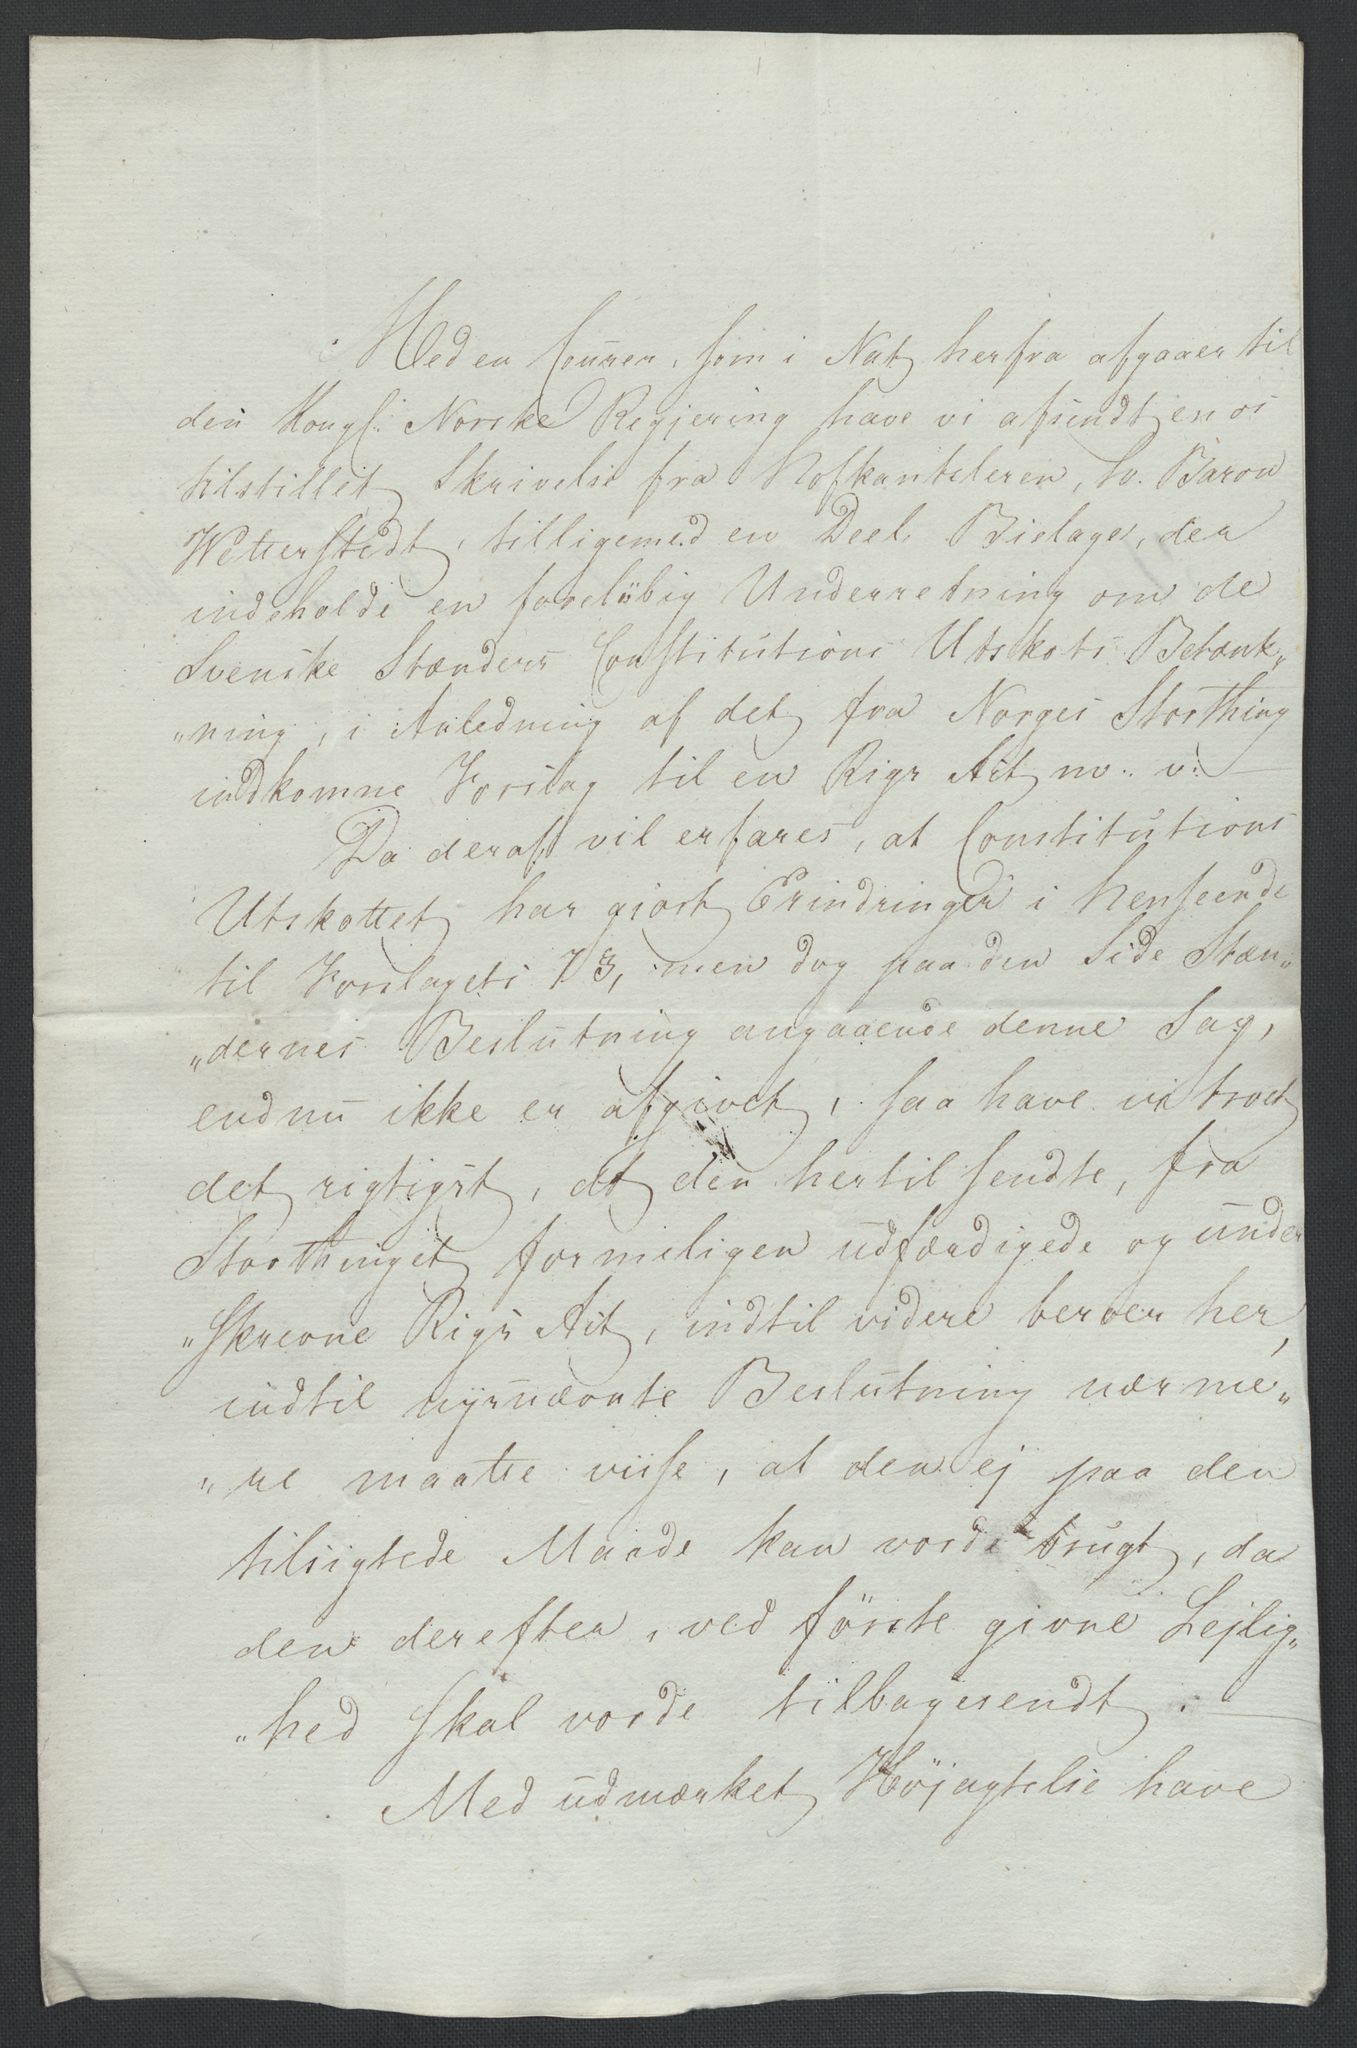 Med en Courer, som i Nat herfra afgaaer til
den Kongl: Norske Regjering have vi afsendt en os
tilstillet Skrivelse fra Hofkantsleren, Hr. Baron
Wetterstedt, tilligemed en Deel Bielager, der
indeholde en foreløbig Underretning om de
Svenske Stænders Constitutions Utskots Betænk„
„ning, i Anledning af det fra Norges Storthing
indkomne Forslag til en Rigs Act m. v:
Da deraf vil erfares, at Constitutions
Utskottet har gjort Erindringer i Henseende
til Forslagets 7 §, men dog paa den Side Stæn„
„dernes Beslutning angaaende denne Sag,
endnu ikke er afgivet, saa have vi troet
det rigtigst, at den hertil sendte, fra
Storthinget formeligen udfærdigede og under
„skrevne Rigs Act, indtil videre beroer her,
indtil nysnævnte Beslutning nærme„
„re maatte viise, at den ej paa den
tilsigtede Maade kan vorde brugt, da
den derefter, ved første givne Lejlig„
„hed skal vorde tilbagesendt.
Med udmærket Højagtelse have